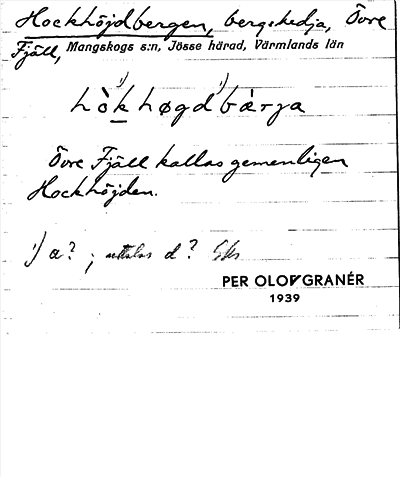 Hockhöjdbergen, bergskedja, Övre
Fjäll, Mangskogs s:n, Jösse härad, Värmlands län
hòkhøgdbærja
Övre Fjäll kallas gemenligen
Hockhöjden.
1) a? ; uttalas d?
PER OLOV GRANÉR
1939